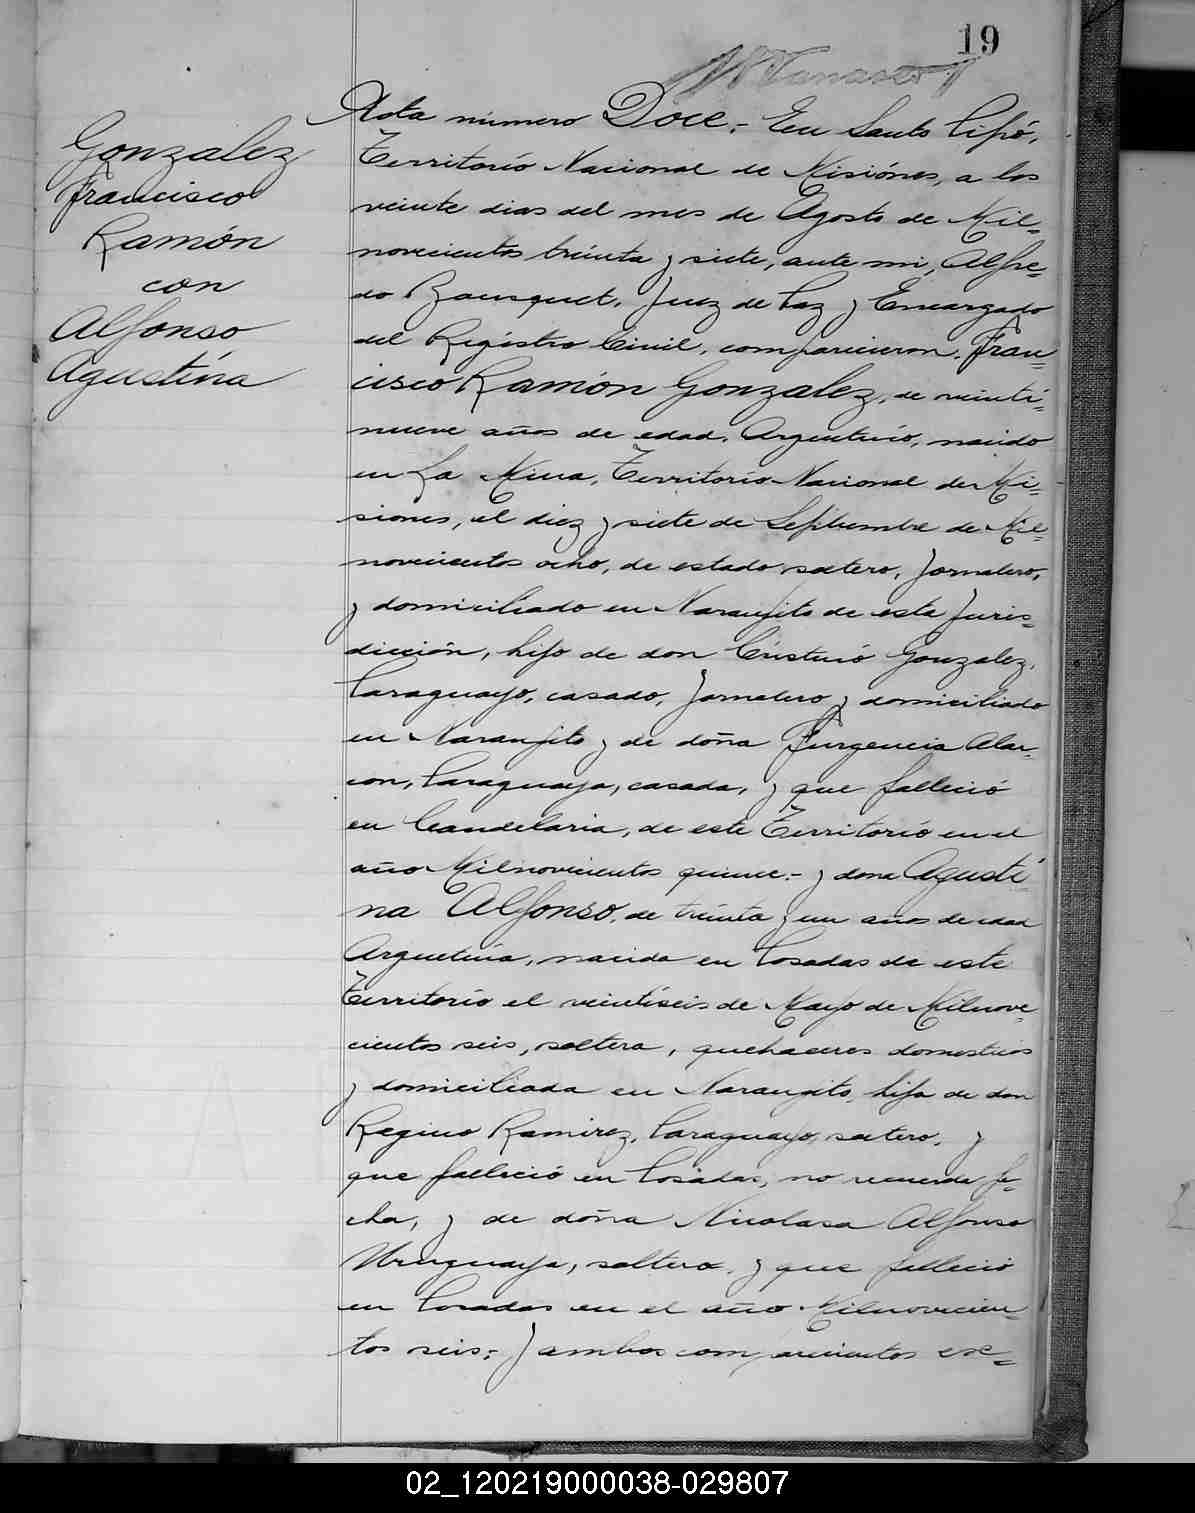 19
Gonzalez
Francisco
Ramón
con
Alfonso
Agustína
Acta número Doce.- En Santo Pipó,
Território Nacional de Misiónes, a los
veinte dias del mes de Agosto de Mil-
novecientos tréinta y siete, ante mi, Alfre-
do Bousquet, Juez de Paz y Encargado
del Regístro Civil, comparecieron, Fran-
cisco Ramón Gonzalez, de veintí-
nueve años de edad, Argentíno, nacido
en La Mina, Território Nacional de Mi-
siones, el diez y siete de Septiembre de Mil-
novecientos ocho, de estado soltero, Jornalero,
y domiciliado en Naranjito de esta Juris-
dicción, hijo de don Gonzalez,
Paraguayo, casado, Jornalero y domiciliado
en Naranjito y de doña Furgencia Alar-
con, Paraguaya, casada, y que falleció
en Candelaria, de este Território en el
año Milnovecientos quince.- y doña Agustí-
na Alfonso, de tréinta y un años de edad
Argentína, nacida en Posadas de este
Território el veintíseis de Mayo de Milnove-
cientos seis, soltera, quehaceres domesticos
y domiciliada en Naranjito, hija de don
Regino Ramirez, Paraguayo, soltero, y
que falleció en Posadas, no recuerda fe-
cha, y de doña Nicolasa Alfonso
Uruguaya, soltera, y que falleció
en Posadas en el año Milnovecien-
tos seis;- Y ambos comparecientes ex-
02_120219000038-029807